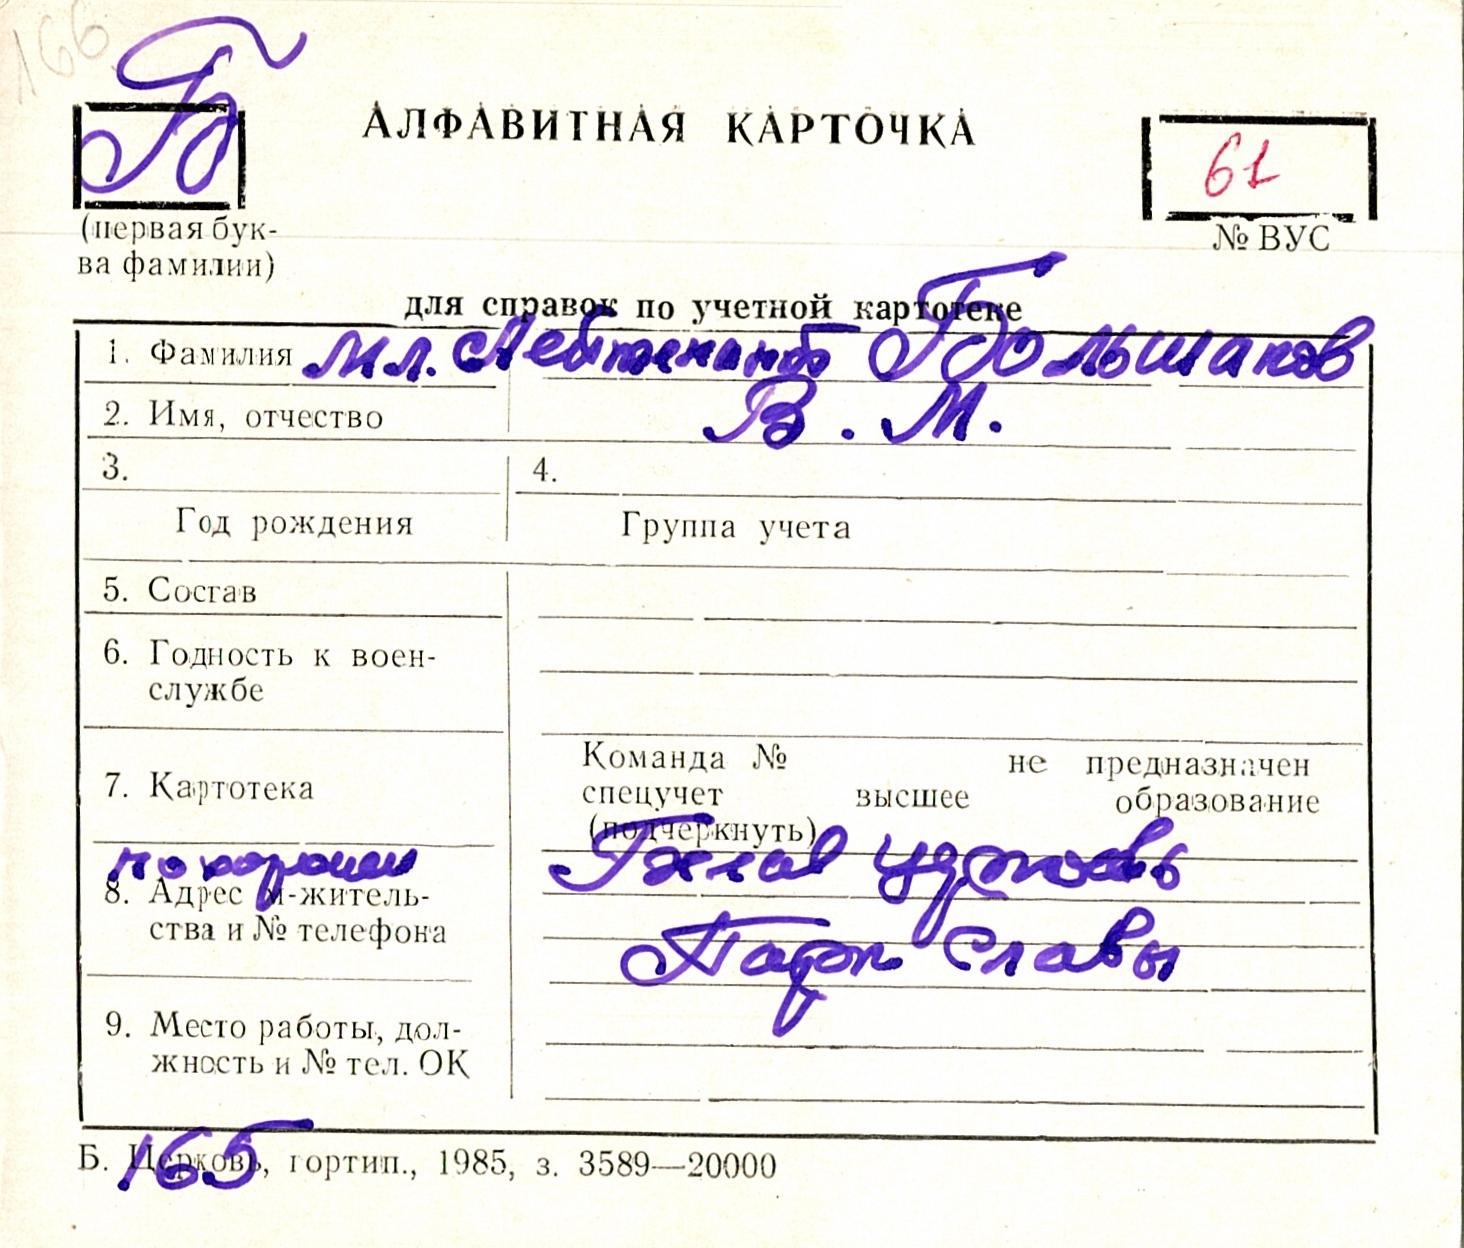 166
Б
АЛФАВИТНАЯ КАРТОЧКА
61
(первая бук-
ва фамилии)
№ ВУС
для справок по учетной картотеке
1. Фамилия Мл. Лейтенант Большаков
2. Имя, отчество В. М.
3. 4.
Год рождения Группа учета
5. Состав
6. Годность к воен-
службе
7. Картотека
Команда № не предназначен
спецучет высшее образование
(подчеркнуть)
похоронен Белая церковь
8. Адрес м-житель-
ства и № телефона
Парк Славы
9. Место работы, дол-
жность и № тел. ОК
165
Б. Церковь, гортип., 1985, з. 3589—20000